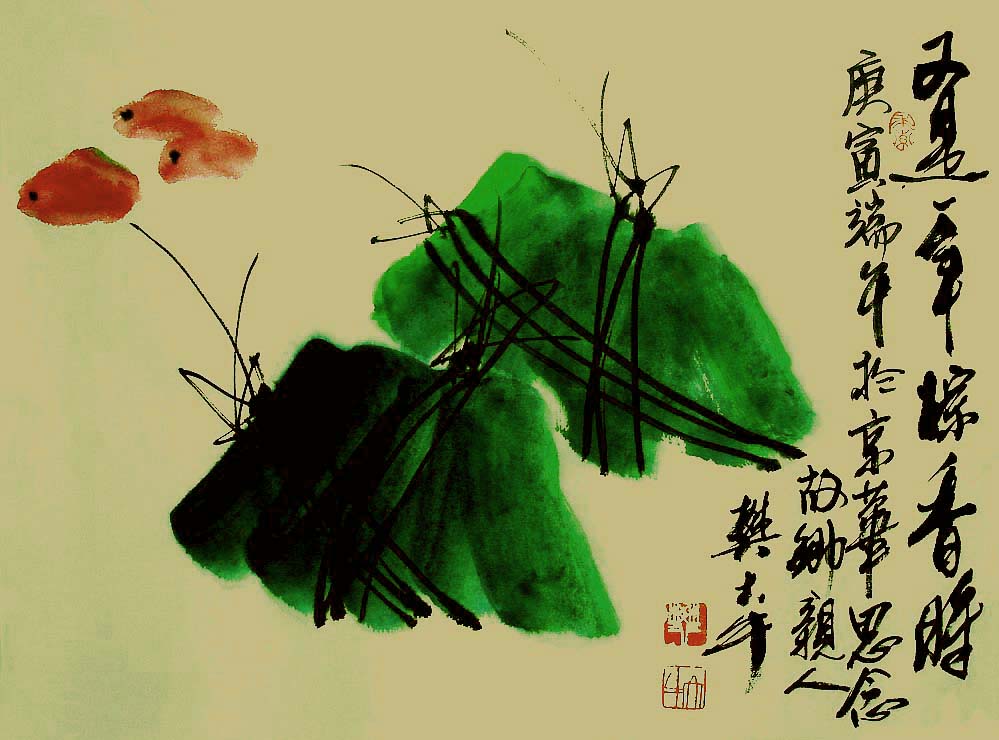 又是一年粽香時
庚寅端午於京華思念
故鄉親人
樊大年